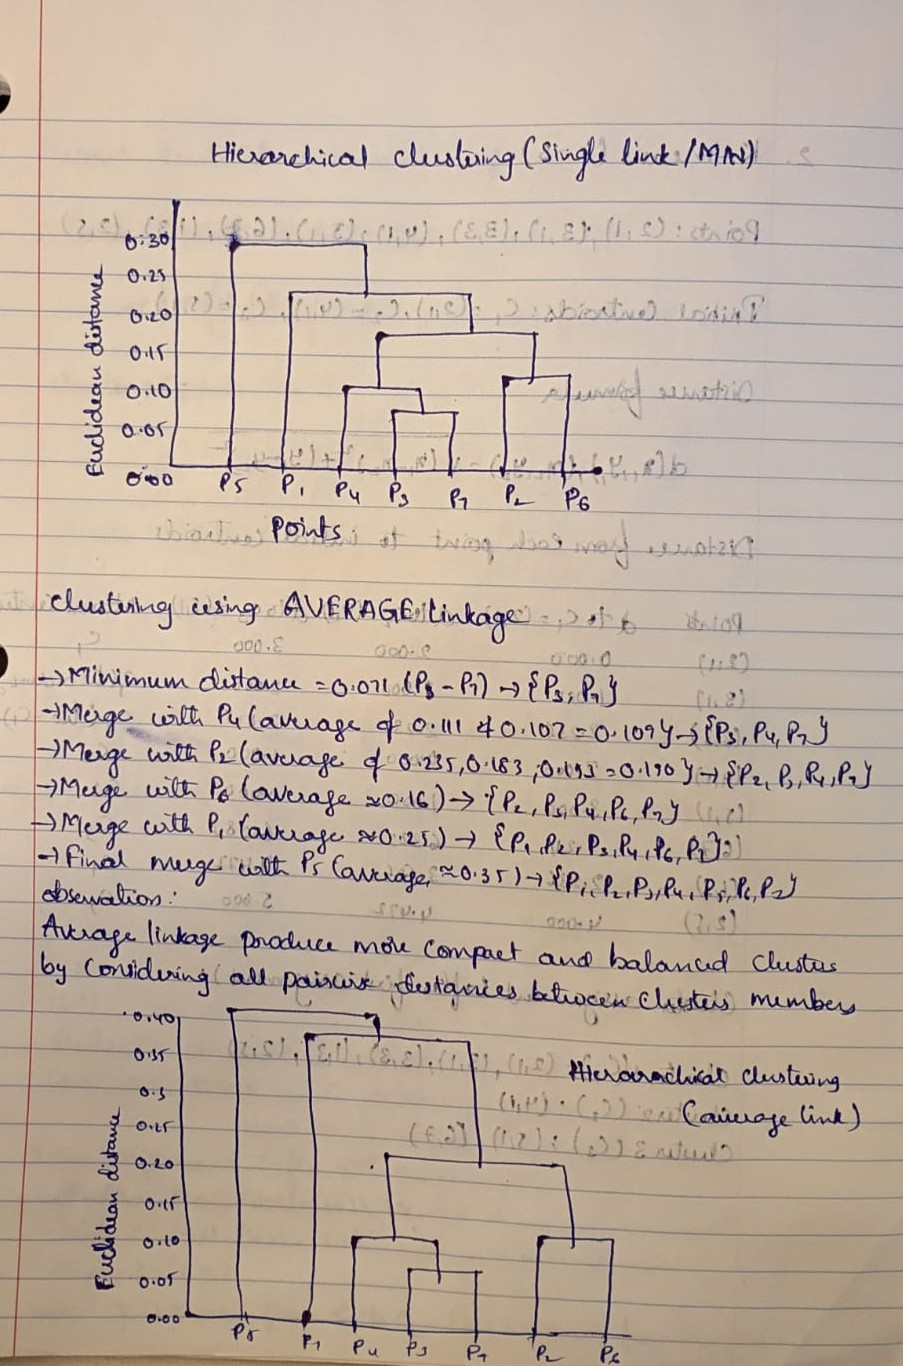 Hierarchical clustering (Single link / MAN)
0.30
0.25
0.20
0.15
0.10
0.05
0.00
Euclidean distance
P5 P1 P4 P3 P7 P2 P6
Points
clustering using AVERAGE linkage
→ Minimum distance = 0.071 (P3 - P7) → {P3, P7}
→ Merge with P4 (average of 0.111 & 0.107 = 0.109} → {P3, P4, P7}
→ Merge with P2 (average of 0.235, 0.183, 0.193 = 0.190} → {P2, P3, P4, P7}
→ Merge with P6 (average ≈ 0.16) → {P2, P3, P4, P6, P7}
→ Merge with P1 (average ≈ 0.25) → {P1, P2, P3, P4, P6, P7}
→ Final merge with P5 (average ≈ 0.35) → {P1, P2, P3, P4, P5, P6, P7}
observation:
Average linkage produce more compact and balanced clusters
by considering all pairwise distances between clusters members
0.40
0.35
0.3
0.25
0.20
0.15
0.10
0.05
0.00
Euclidean distance
Hierarachical clustering
(average link)
P5 P1 P4 P3 P7 P2 P6